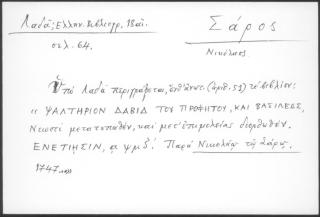 Λαδᾶ, Ἑλλην. Βιβλιογρ. 18 αἰ.
σελ. 64.
Σάρος
Νικόλαος
Ὑπὸ Λαδᾶ περιγράφεται, ἐνθ' ἄνωτ. (ἀριθ. 51) τὸ βιβλίον:
"ΨΑΛΤΗΡΙΟΝ ΔΑΒΙΔ ΤΟΥ ΠΡΟΦΗΤΟΥ, ΚΑΙ ΒΑΣΙΛΕΩΣ,
Νεωστὶ μετατυπωθέν, καὶ μετ' ἐπιμελείας διορθωθέν.
ΕΝΕΤΙΗΣΙΝ, α ψμζ΄. Παρὰ Νικολάῳ τῷ Σάρῳ.
1747